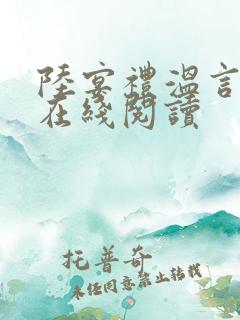 陸宴禮溫言
在綫閱讀
托普奇
未經同意禁止轉載